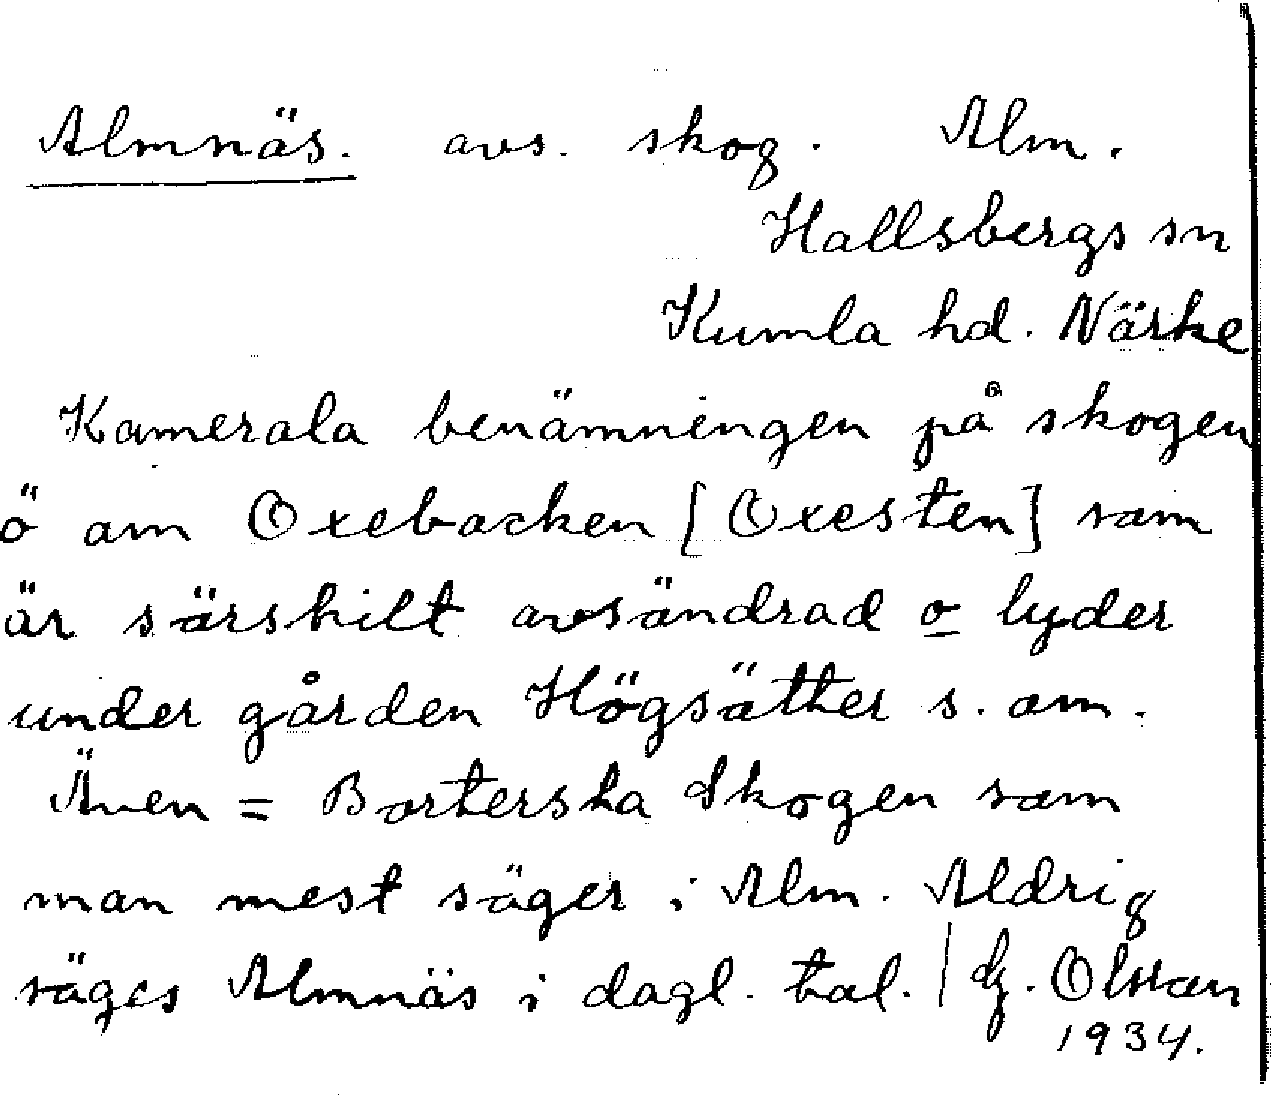 Almnäs. avs. skog. Alm.
Hallsbergs sn
Kumla hd. Närke
Kamerala benämningen på skogen
ö om Oxebacken [Oxesten] som
är särskilt avsöndrad o lyder
under gården Högsätter s. om.
Även = Borterska Skogen som
man mest säger i Alm. Aldrig
säges Almnäs i dagl. tal. / G. Olsson
1934.